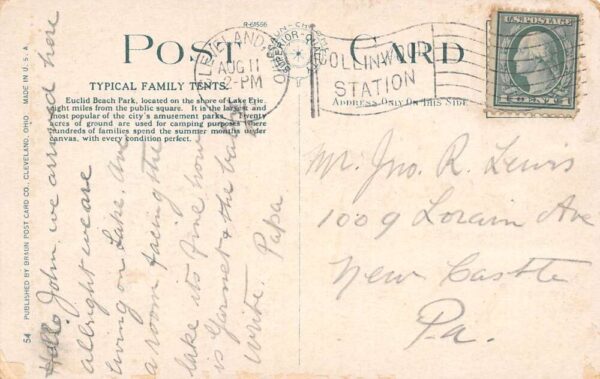 R-61566
POST CARD
CLEVELAND, O
AUG 11
2-PM
COLLINWOOD
STATION
U.S. POSTAGE
1 CENT 1
ADDRESS ONLY ON THIS SIDE
TYPICAL FAMILY TENTS.
Euclid Beach Park, located on the shore of Lake Erie,
eight miles from the public square. It is the largest and
most popular of the city's amusement parks. Twenty
acres of ground are used for camping purposes where
hundreds of families spend the summer months under
canvas, with every condition perfect.
54 PUBLISHED BY BRAUN POST CARD CO. CLEVELAND, OHIO MADE IN U.S.A.
Hello John, we arrived here
allright we are
living on Lake. Ave
a room facing the
lake its fine how
is Garnet & the baby
write. Papa
Mr. Jno. R. Lewis
1009 Lorain Ave
New Castle
Pa.